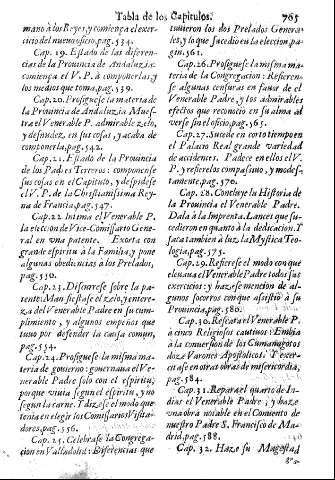 Tabla de los Capitulos. 765
mano à los Reyes, y comiença el exer-
cicio del nuevo oficio, pag. 534.
Cap. 19. Estado de las diferen-
cias de la Provincia de Andaluzia:
comiença el V. P. à componerlas, y
los medios que toma, pag. 539.
Cap. 20. Prosiguese la materia de
la Provincia de Andaluzia. Mues-
tra el Venerable P. admirable zelo,
y desnudez, en sus cosas, y acaba de
componerla, pag. 542.
Cap. 21. Estado de la Provincia
de los Padres Terceros: componense
sus cosas en el Capitulo, y despidese
el V. P. de la Christianissima Rey-
na de Francia, pag. 547.
Cap. 22. Intima el Venerable P.
la eleccion de Vice-Comissario Gene-
ral en una patente. Exorta con
grande espiritu à la Familia, y pone
algunas obediencias à los Prelados,
pag. 550.
Cap. 23. Discurrese sobre la pa-
tente: Manifiestase el zelo, y entere-
za del Venerable Padre en su cum-
plimiento, y algunos empeños que
tuvo por defender la causa comun,
pag. 554.
Cap. 24. Prosiguese la misma ma-
teria de govierno: governava el Ve-
nerable Padre solo con el espiritu;
porque vivia segun el espiritu, y no
segun la carne. Y dizese el modo que
tenia en elegir los Comissarios Visita-
dores, pag. 556.
Cap. 25. Celebrase la Congrega-
cion en Valladolid: Diferencias que
tuvieron los dos Prelados Genera-
les, y lo que sucediò en la eleccion, pa-
gin. 561.
Cap. 26. Prosiguese la misma ma-
teria de la Congregacion: Refieren-
se algunas censuras en favor de el
Venerable Padre, y los admirables
efectos que reconociò en su alma al
verse sin el oficio, pag. 565.
Cap. 27. Sucede en corto tiempo en
el Palacio Real grande variedad
de accidentes. Padece en ellos el V.
P. y refierelos compassivo, y modes-
tamente, pag. 570.
Cap. 28. Concluye la Historia de
la Provincia el Venerable Padre.
Dala à la Imprenta. Lances que su-
cedieron en quanto à la dedicacion. Y
saca tambien à luz la Mystica Teo-
logia, pag. 575.
Cap. 29. Refierese el modo con que
elevava el Venerable Padre todos sus
exercicios: y hazese mencion de al-
gunos socorros con que assistiò à su
Provincia, pag. 580.
Cap. 30. Rescata el Venerable P.
à cinco Religiosos cautivos: Embia
à la conversion de los Cumanagotos
doze Varones Apostolicos. Y exer-
cita en otras obras de misericordia,
pag. 584.
Cap. 31. Repara el quarto de In-
dias el Venerable Padre; y haze
una obra notable en el Convento de
nuestro Padre S. Francisco de Ma-
drid, pag. 588.
Cap. 32. Haze su Magestad